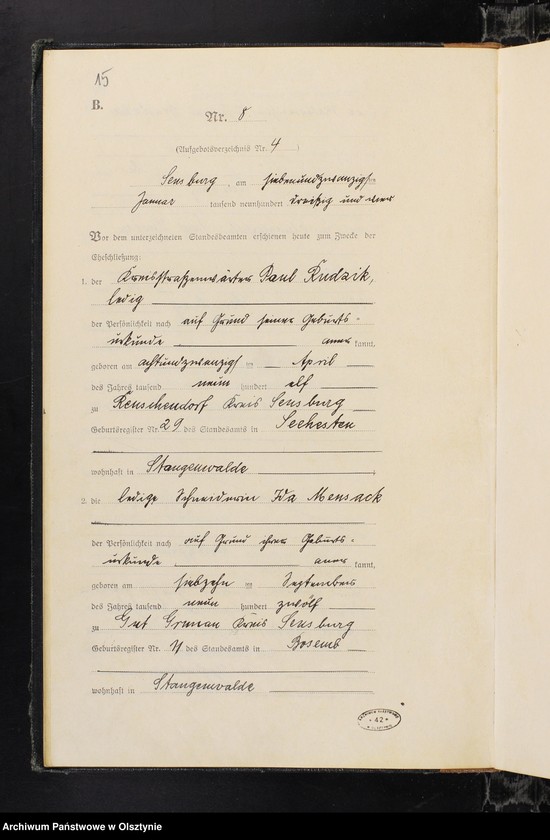 15
B.
Nr. 8
(Aufgebotsverzeichnis Nr. 4)
Sensburg, am siebenundzwanzigsten
Januar tausend neunhundert dreißig und vier
Vor dem unterzeichneten Standesbeamten erschienen heute zum Zwecke der
Eheschließung:
1. der Kreisstraßenwärter Paul Rudzik,
ledig
der Persönlichkeit nach auf Grund seiner Geburts-
urkunde anerkannt,
geboren am achtundzwanzigsten April
des Jahres tausend neun hundert elf
zu Kreis Sensburg
Geburtsregister Nr. 29 des Standesamts in Seehesten
wohnhaft in Stangenwalde,
2. die ledige Schneiderin Ida Mensack
der Persönlichkeit nach auf Grund ihrer Geburts-
urkunde anerkannt,
geboren am siebzehnten September
des Jahres tausend neun hundert zwölf
zu Gut Kreis Sensburg
Geburtsregister Nr. des Standesamts in Bosemb
wohnhaft in Stangenwalde
ARCHIWUM PAŃSTWOWE
* 42 *
W OLSZTYNIE
Archiwum Państwowe w Olsztynie